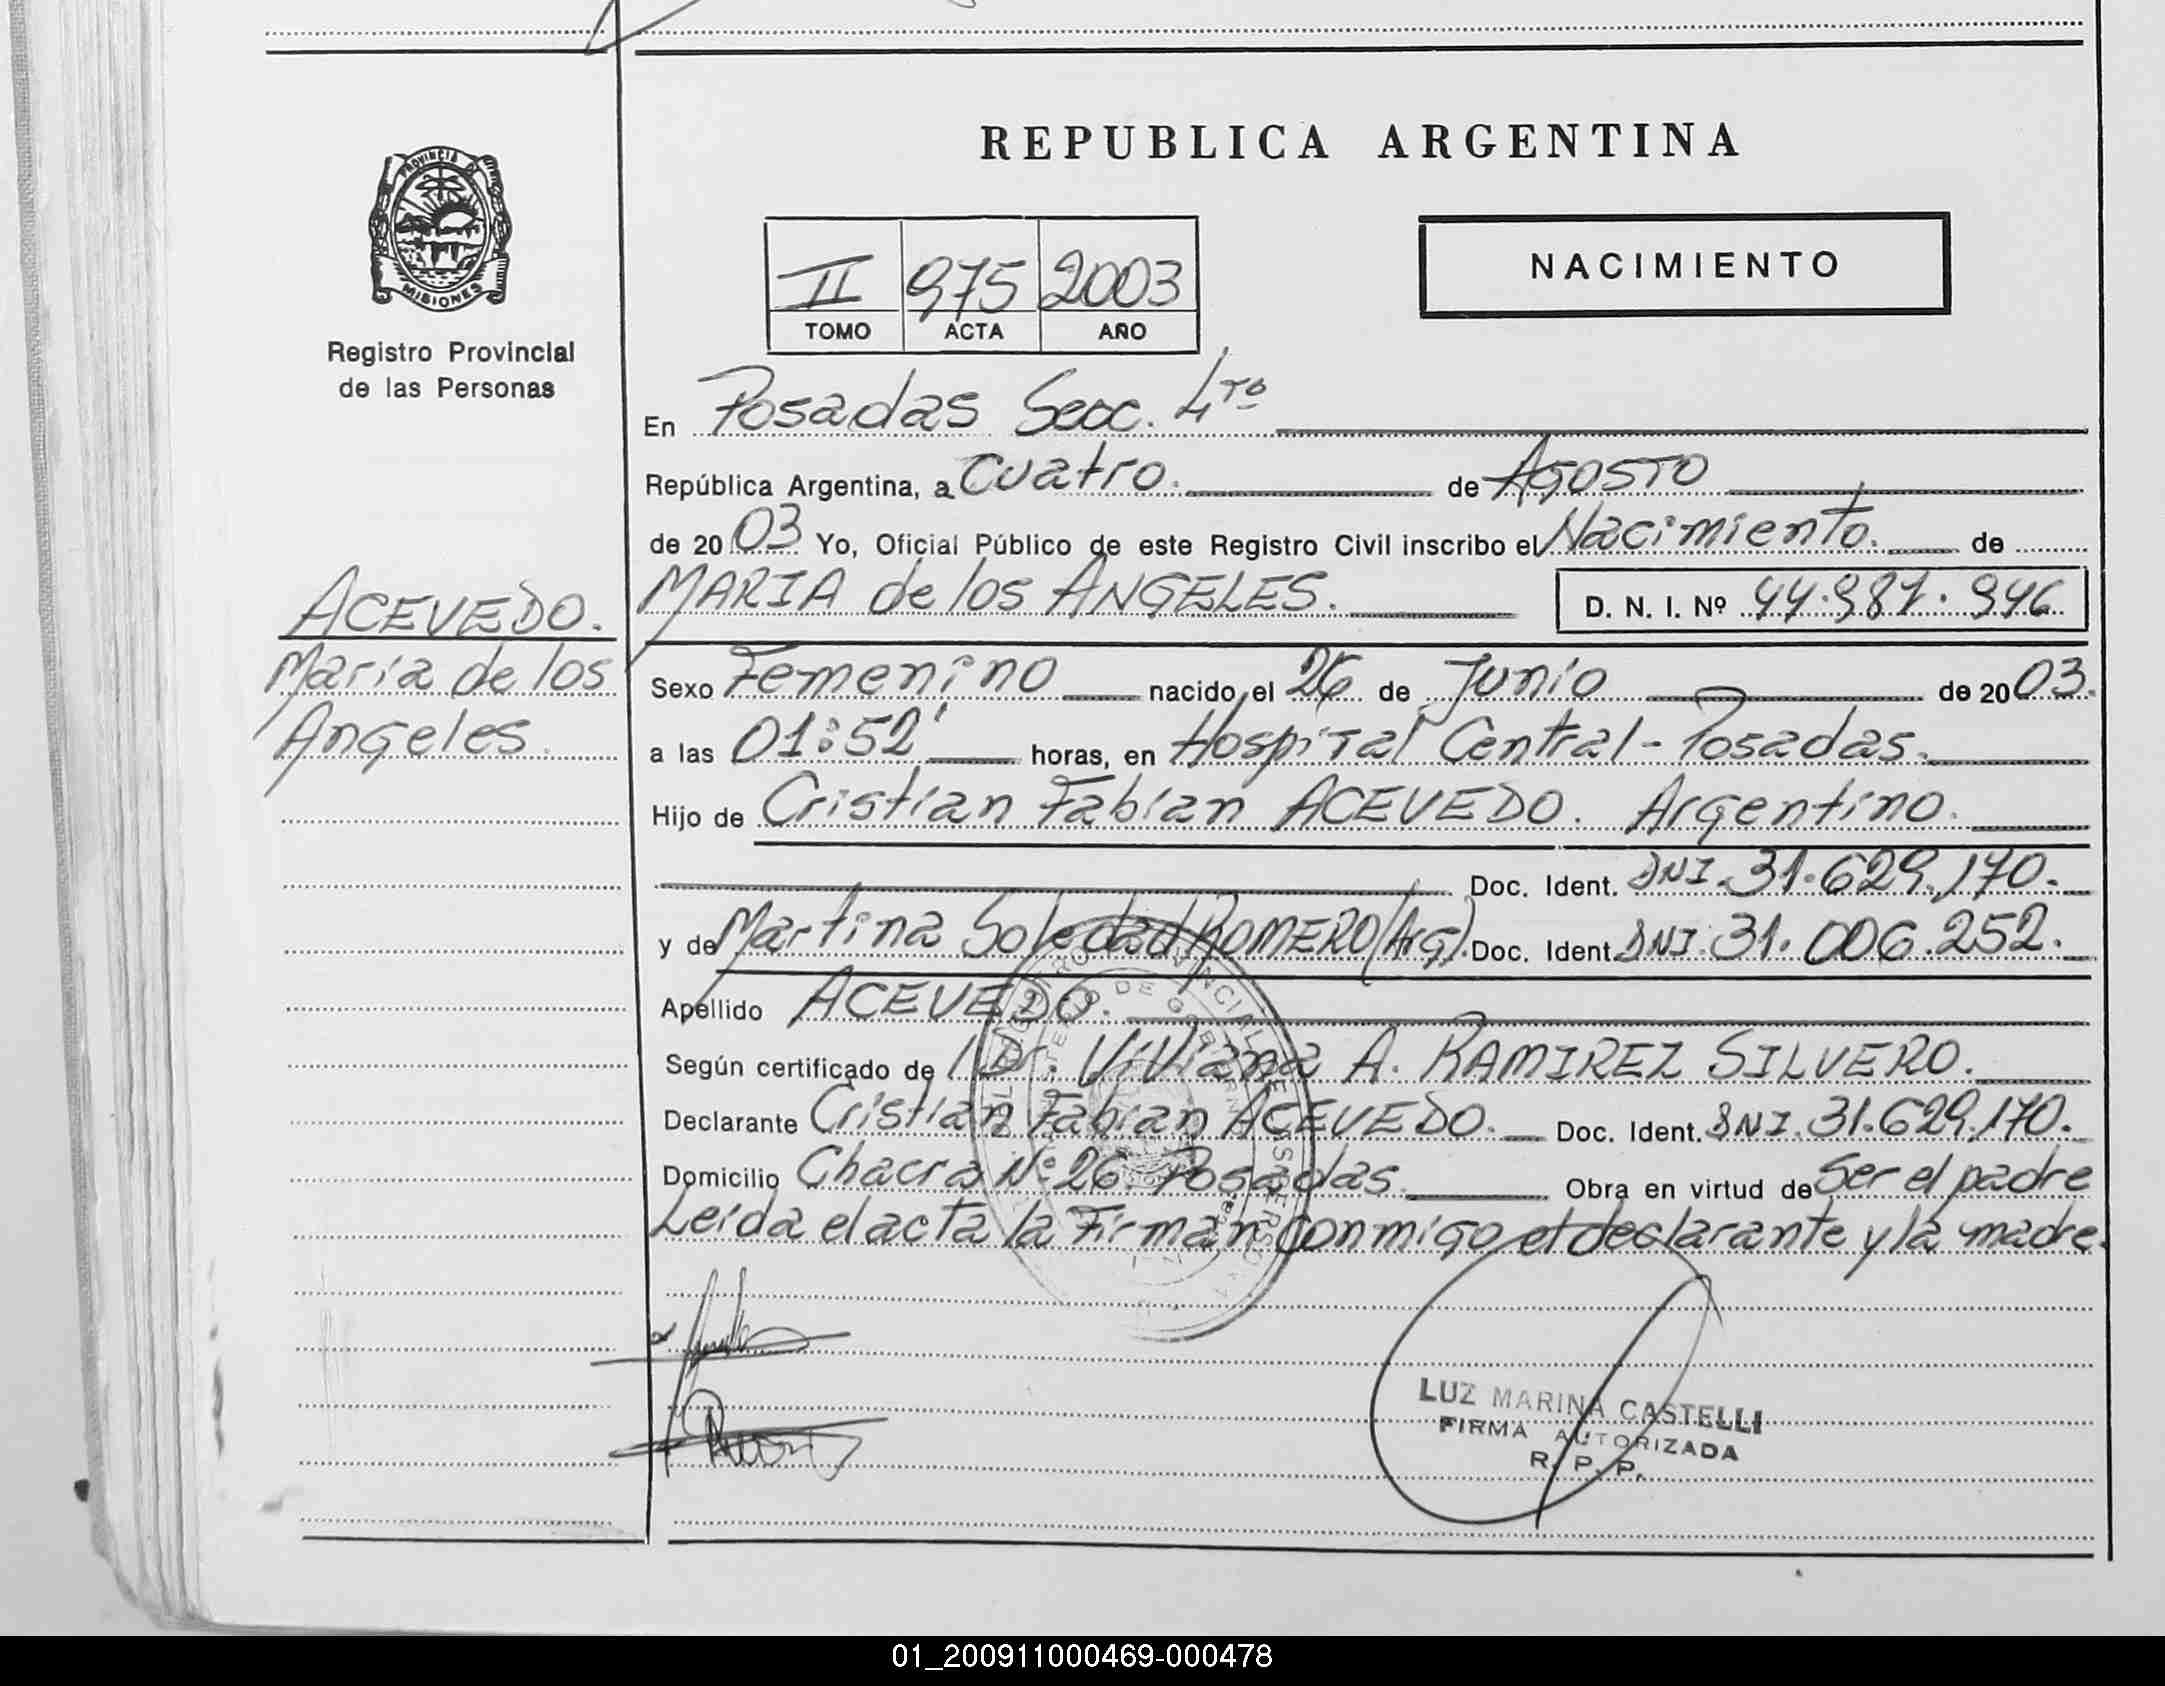 REPUBLICA ARGENTINA
PROVINCIA DE
MISIONES
Registro Provincial
de las Personas
II 975 2003
TOMO ACTA AÑO
NACIMIENTO
En Posadas Secc. 4ta
República Argentina, a Cuatro. de AGOSTO
de 2003 Yo, Oficial Público de este Registro Civil inscribo el Nacimiento. de
MARIA de los ANGELES. D. N. I. Nº 44.987.946
ACEVEDO.
María de los
Angeles.
Sexo Femenino nacido el 26 de Junio de 2003.
a las 01:52' horas, en Hospital Central - Posadas.
Hijo de Cristian Fabian ACEVEDO. Argentino.
Doc. Ident. DNI. 31.629.170.
y de Martina Soledad ROMERO (Arg). Doc. Ident. DNI. 31.006.252.
Apellido ACEVEDO.
Según certificado de Viviana A. RAMIREZ SILVERO.
Declarante Cristian Fabian ACEVEDO. Doc. Ident. DNI. 31.629.170.
Domicilio Chacra Nº 26. Posadas. Obra en virtud de Ser el padre
Leída el acta la Firman conmigo el declarante y la madre.
LUZ MARINA CASTELLI
FIRMA AUTORIZADA
R. P. P.
01_200911000469-000478